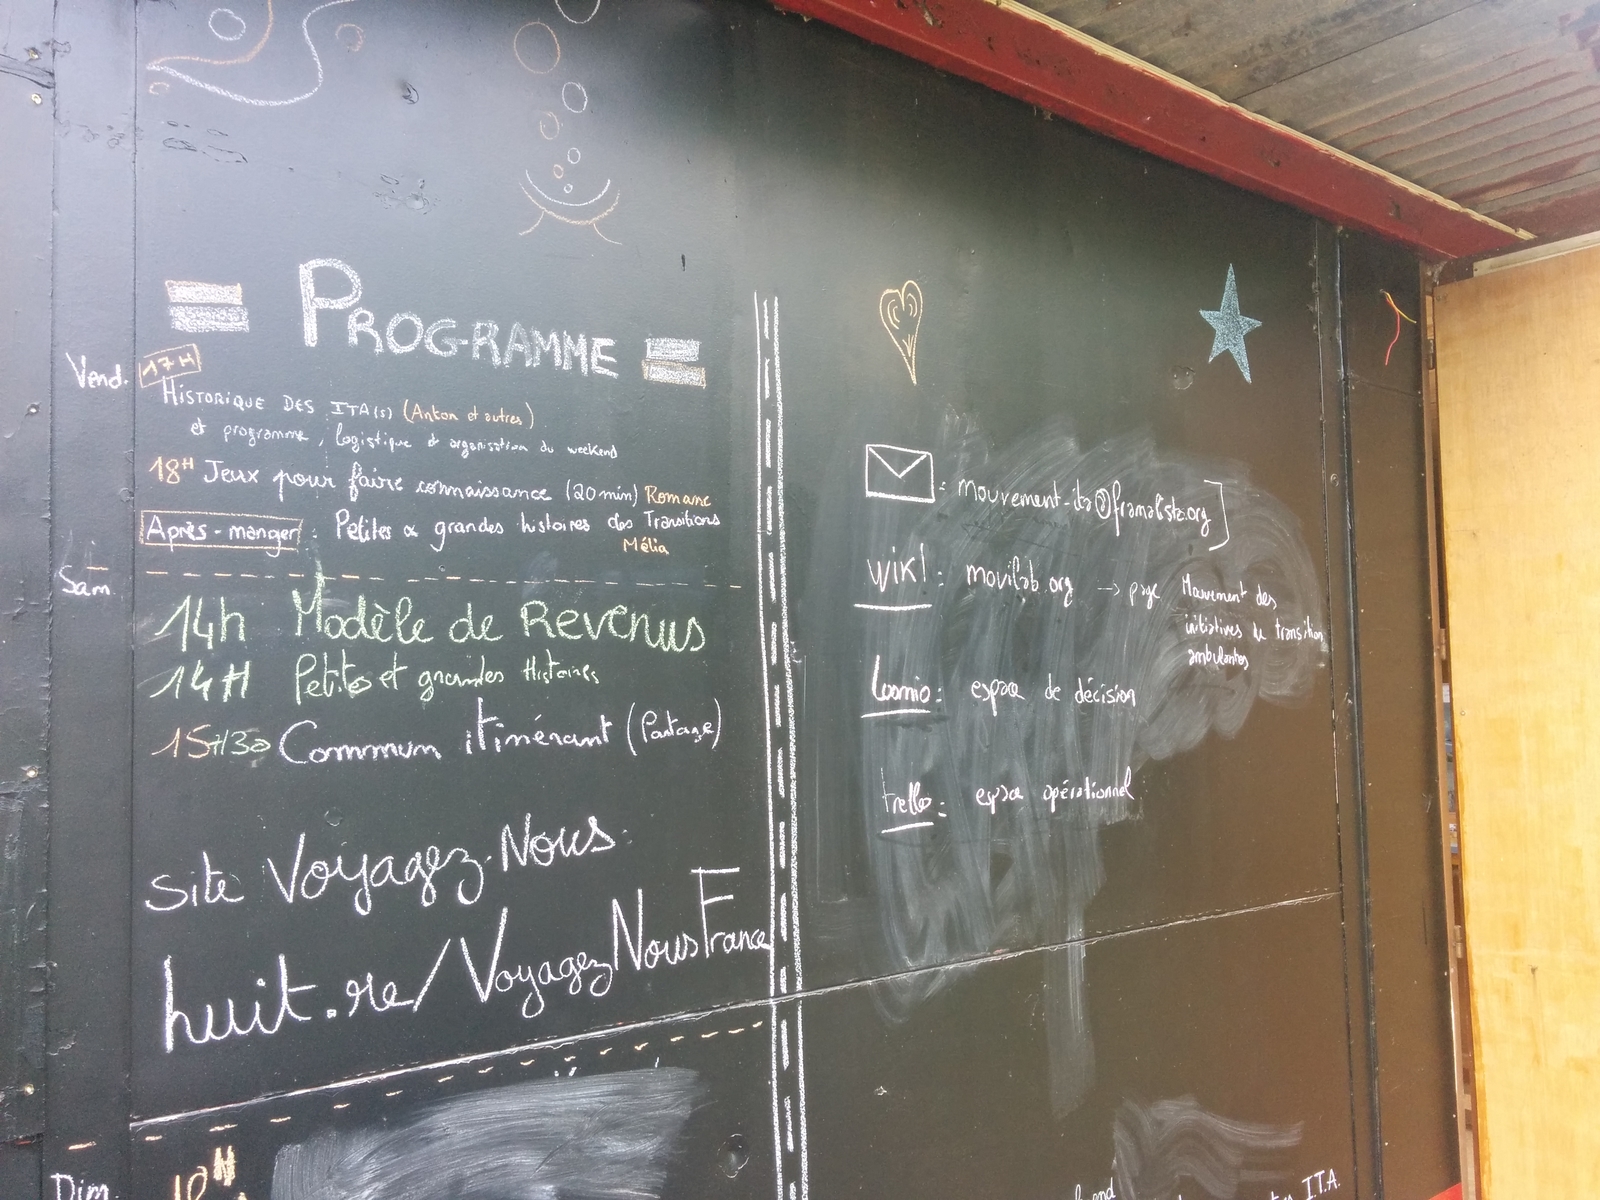 PROGRAMME
Vend. 17H
HISTORIQUE DES ITA(s) (Anton et autres)
et programme, logistique et organisation du weekend
18H Jeux pour faire connaissance (20min) Romane
Après-manger : Petites & grandes histoires des Transitions
Mélia
Sam.
14h Modèle de Revenus
14H Petites et grandes Histoires
15H30 Commun itinérant (Partage)
site Voyagez-Nous :
huit.re/VoyagezNousFrance
Dim. 10H
: mouvement-ita@framaliste.org]
wiki : movilab.org → page Mouvement des
initiatives de transition
ambulantes
Loomio : espace de décision
trello : espace opérationnel
ITA.